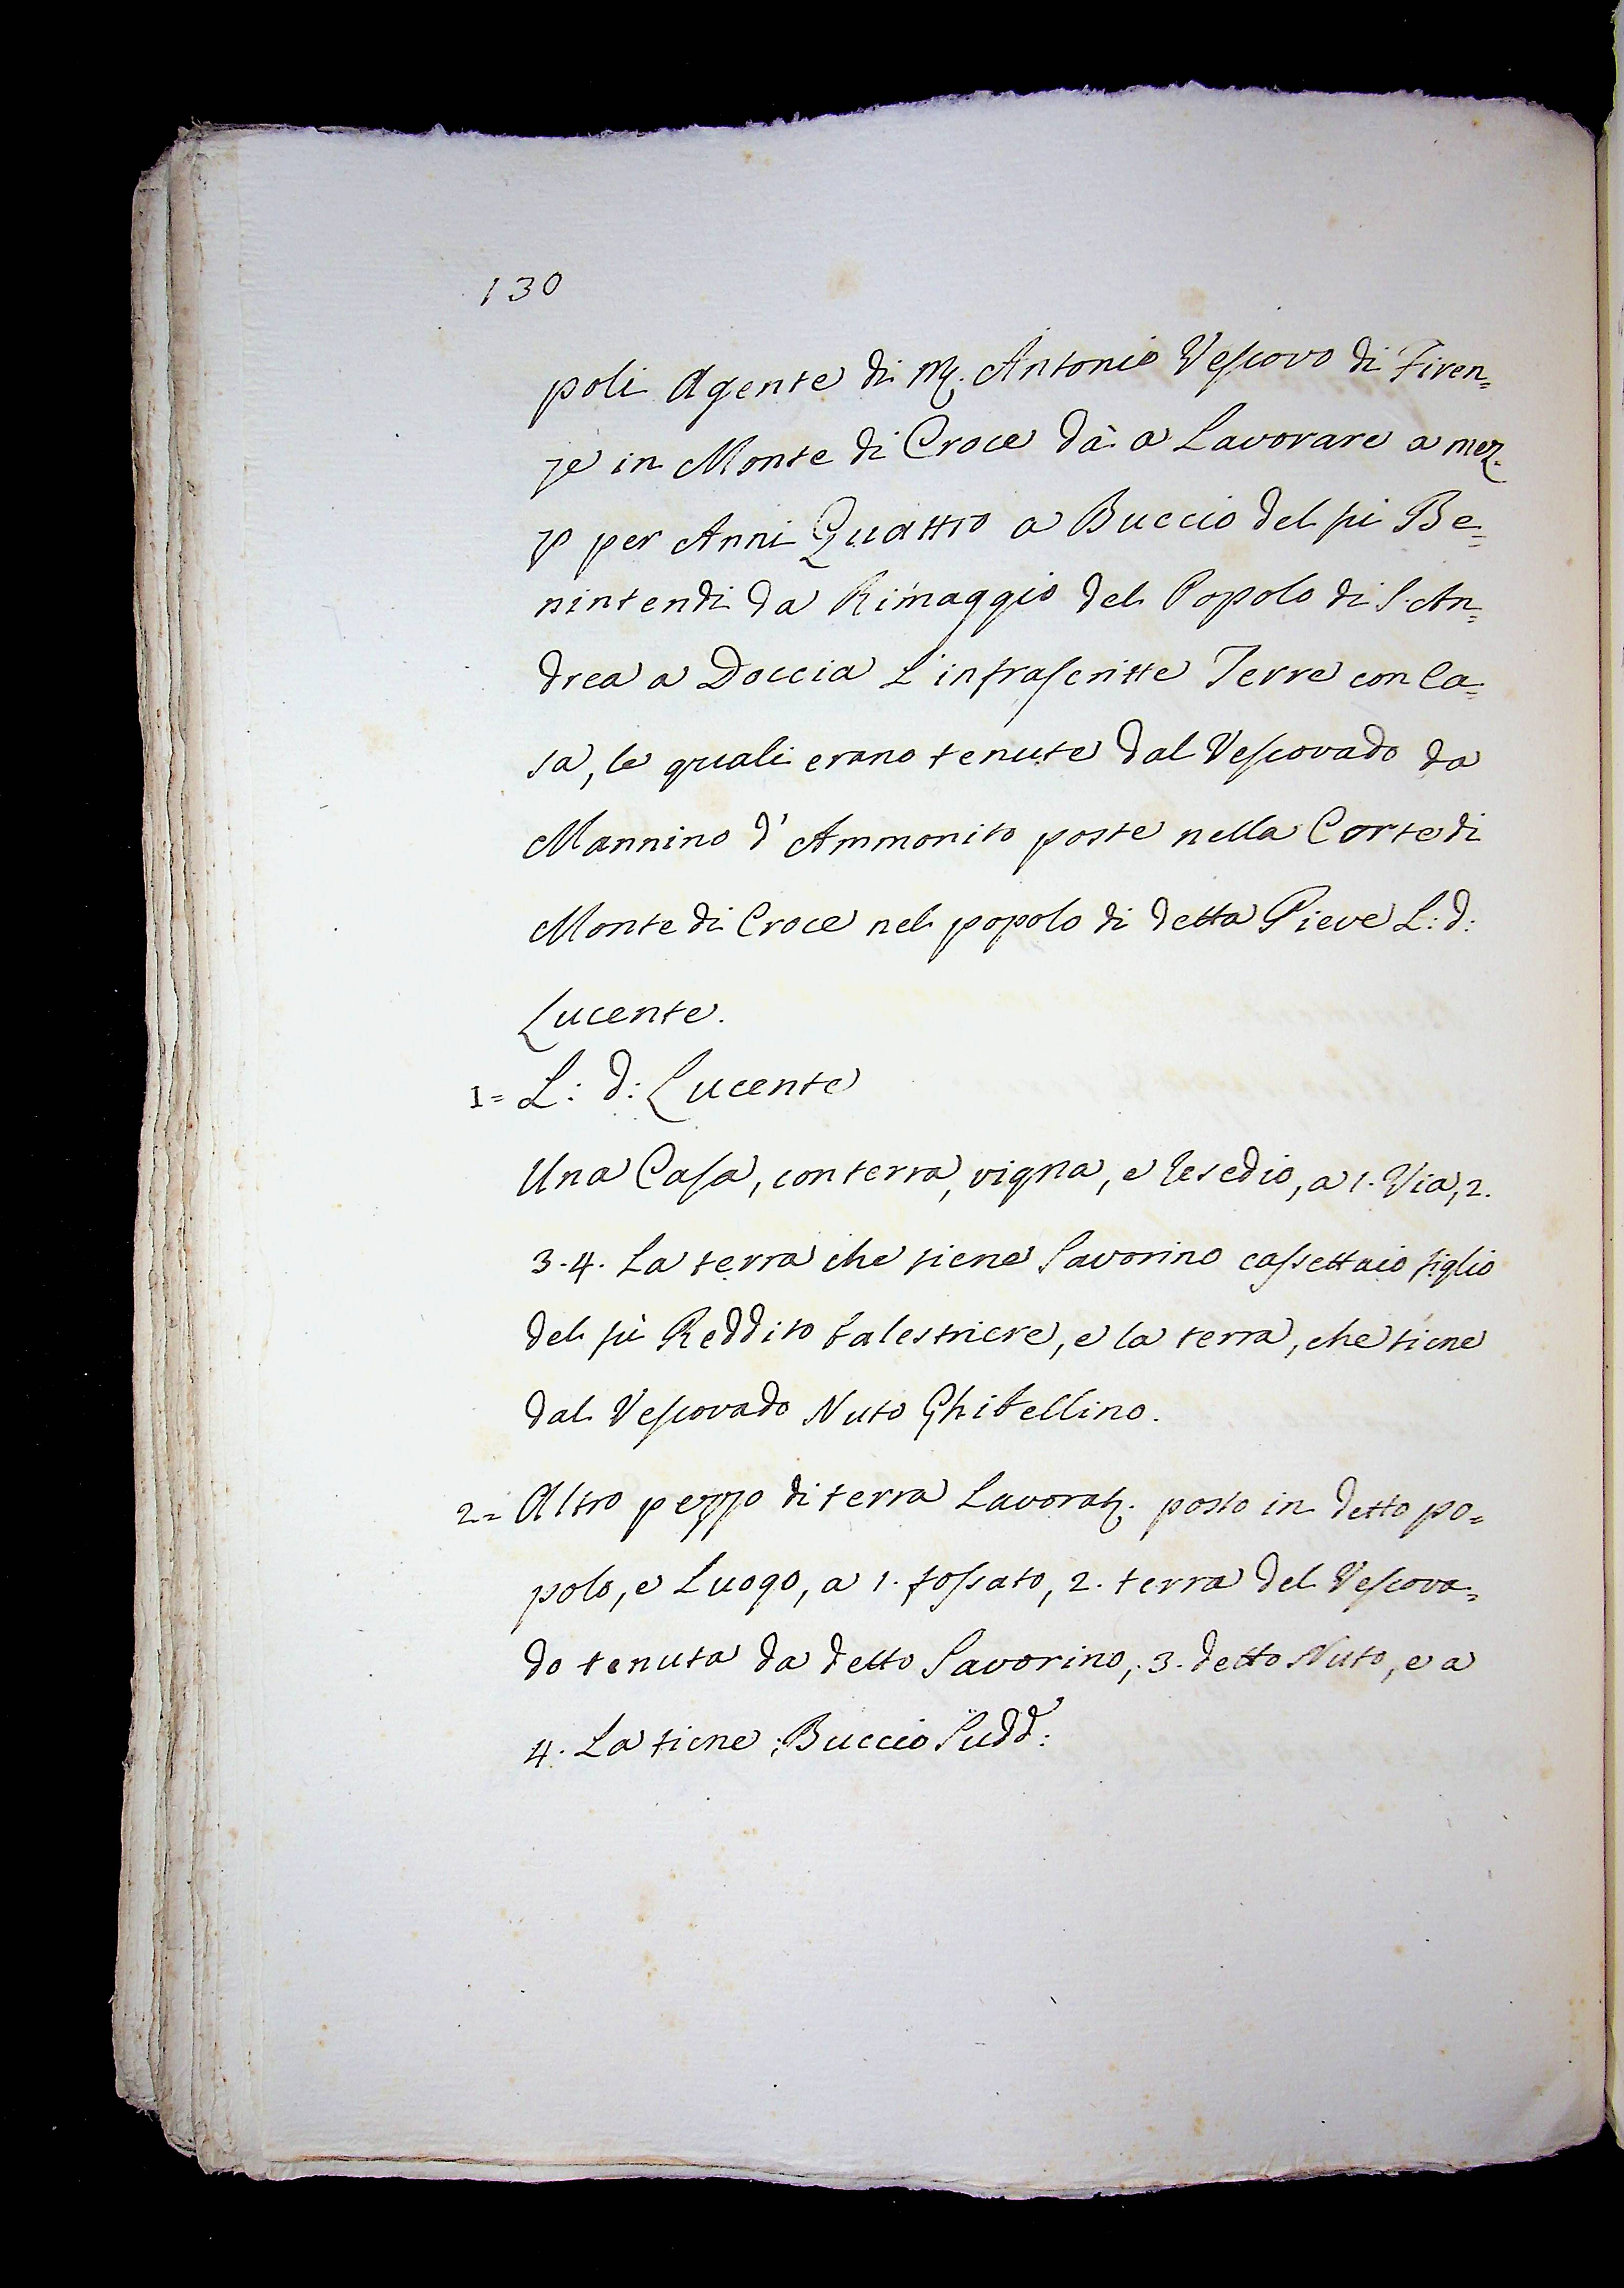 130
poli Agente di M. Antonio Vescovo di Firen=
ze in Monte di Croce dà a Lavorare a mez=
zo per Anni Quattro a Buccio del fù Be=
nintendi da Rimaggio del Popolo di S. An=
drea a Doccia L'infrascritte Terre con Ca=
sa, le quali erano tenute dal Vescovado da
Mannino d'Ammonito poste nella Corte di
Monte di Croce nel popolo di detta Pieve L: d:
Lucente.
1= L: d: Lucente
Una Casa, con terra, vigna, e Resedio, a 1. Via, 2.
3. 4. La terra che tiene Savorino cassettaio figlio
del fù Reddito balestriere, e la terra, che tiene
dal Vescovado Nuto Ghibellino.
2= Altro pezzo di terra Lavorat. posto in detto po=
polo, e Luogo, a 1. fossato, 2. terra del Vescova=
do tenuta da detto Savorino, 3. detto Nuto, e a
4. La tiene Buccio Sudd: